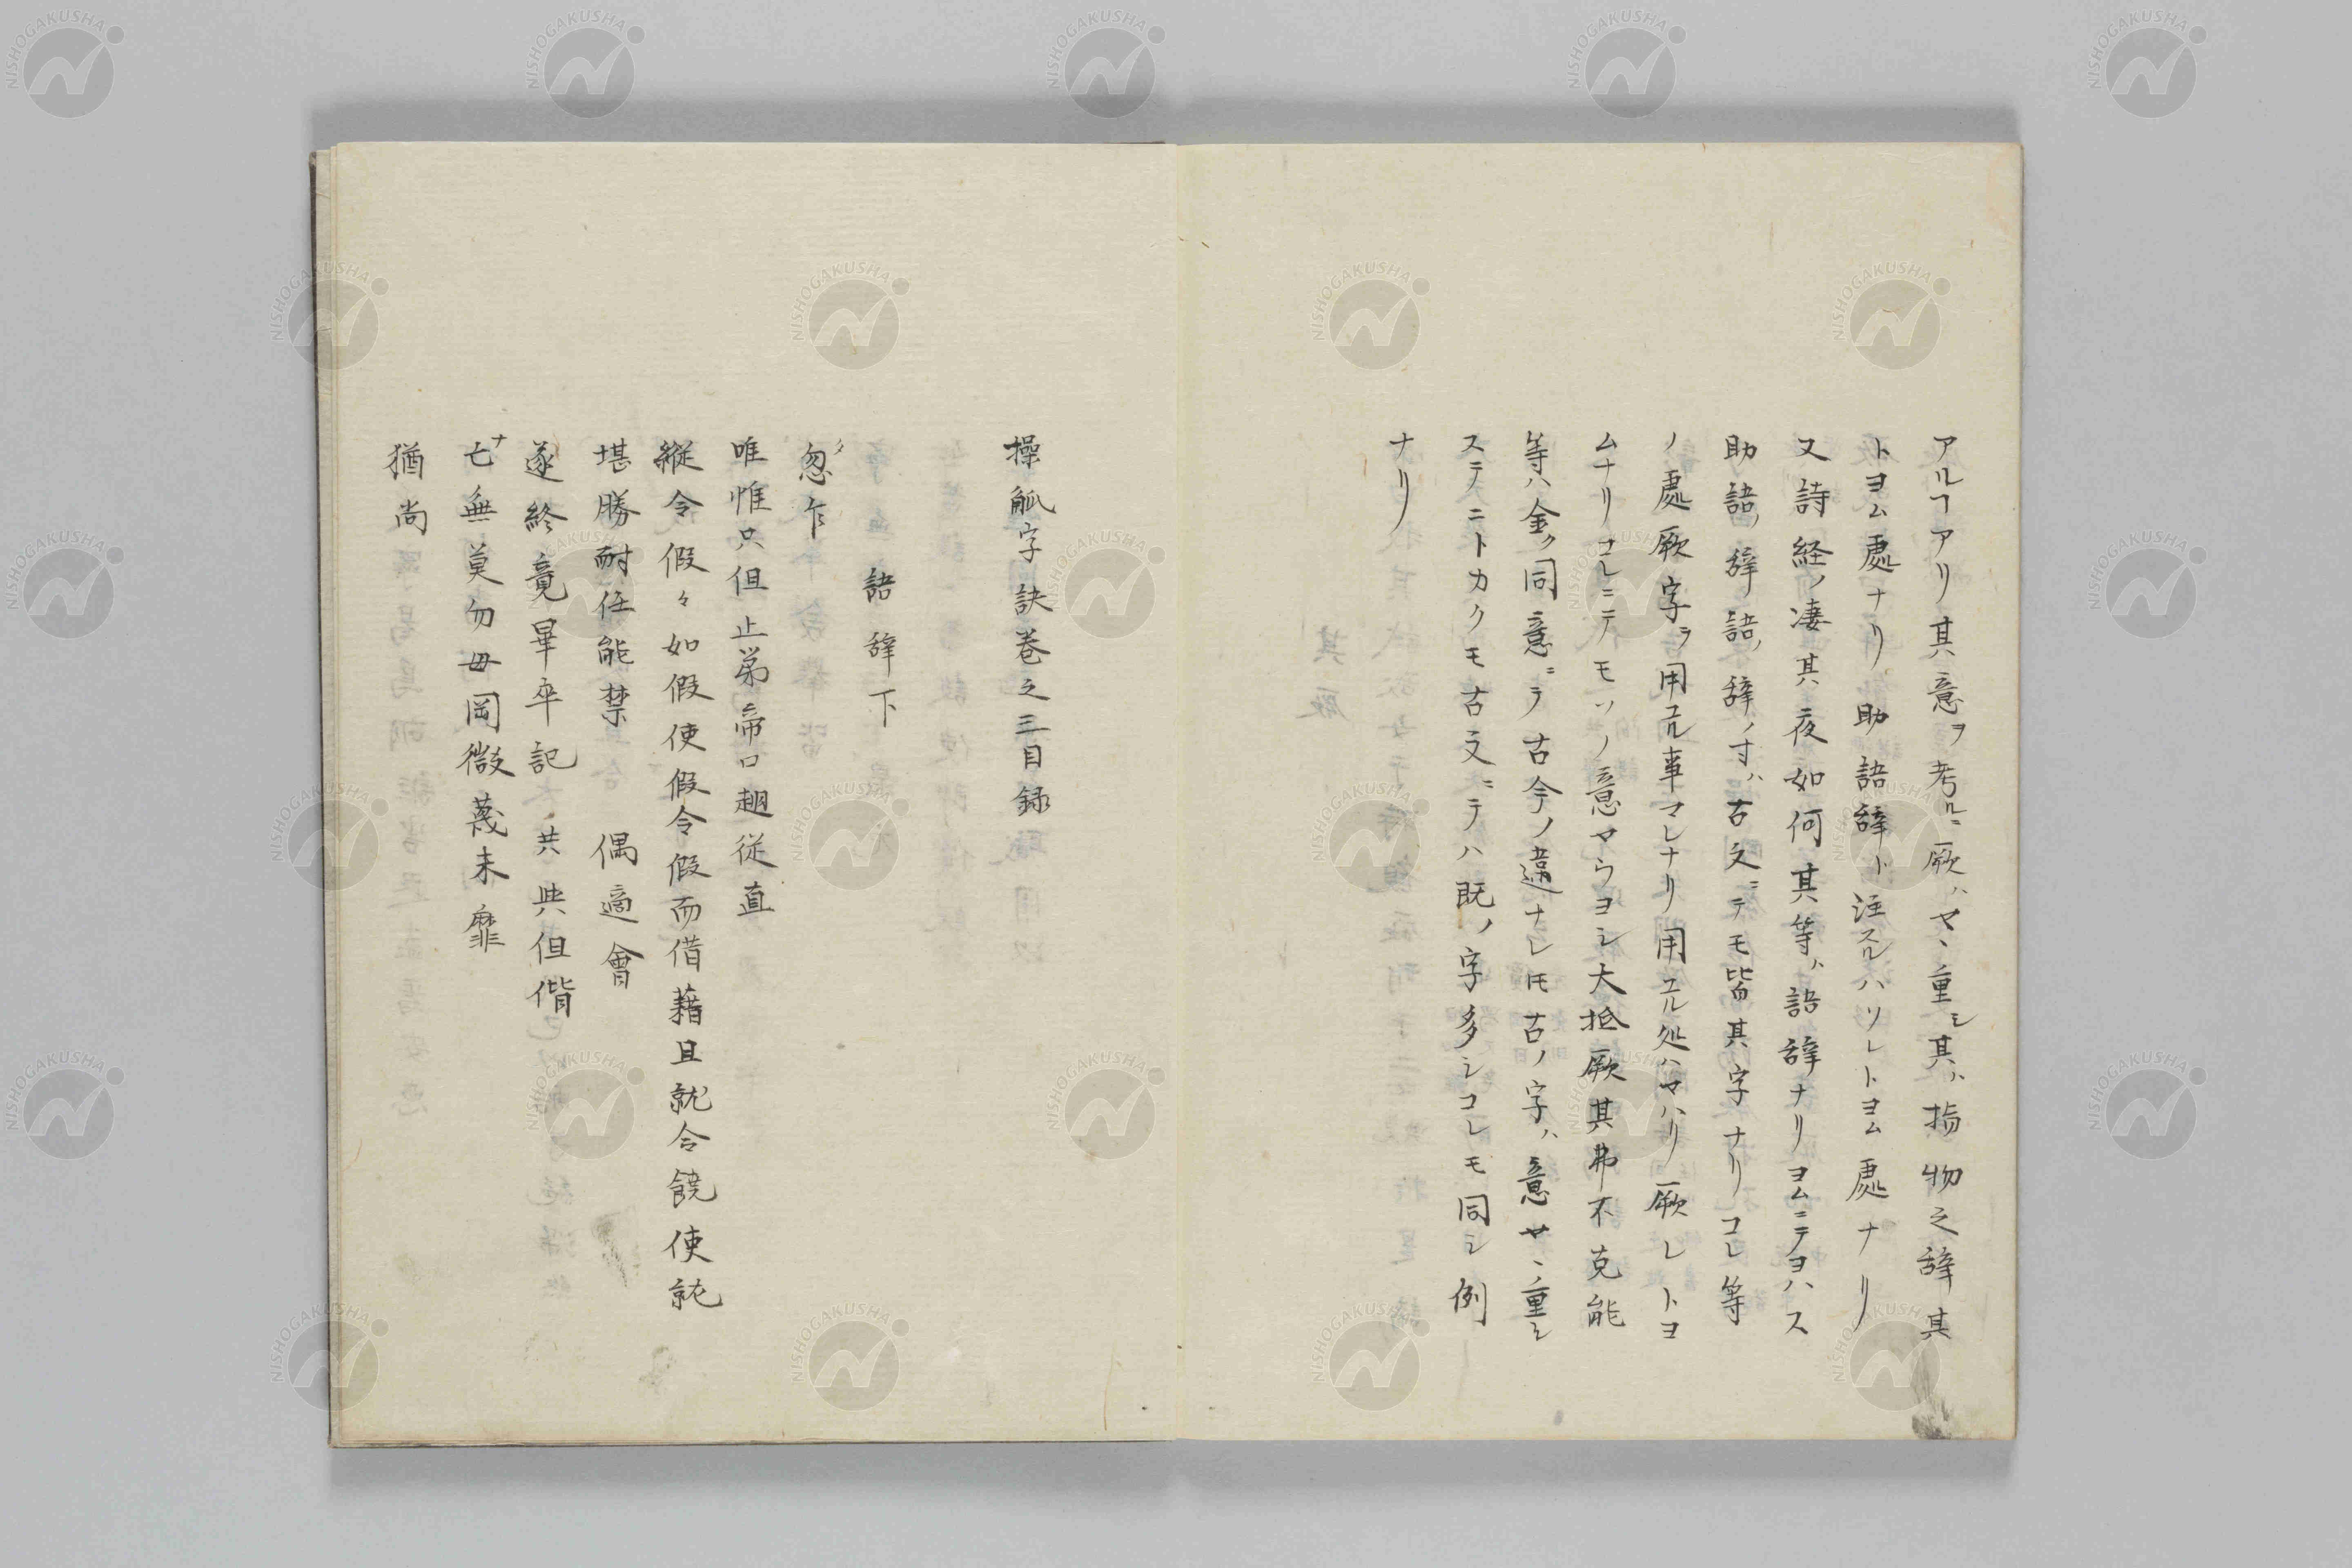 アルヿアリ其意ヲ考ルニ厥ハヤヽ重シ其ハ指物之辞其
トヨム處ナリ助語辞ト注スルハソレトヨム處ナリ
又詩経ノ凄其夜如何其等ハ語辞ナリヨムニテヨハス
助語ノ辞語ノ辞ノ寸ハ古文ニテモ皆其字ナリコレ等
ノ處厥字ヲ用ル事マレナリ用ユル処ハマハリ厥レトヨ
ムナリコレニテモソノ意ヤウヨシ大抵厥其弗不克能
等ハ全ク同意ニテ古今ノ違ナレ𪜈古ノ字ハ意ヤヽ重シ
ステニトカクモ古文ニテハ既ノ字多シコレモ同シ例
ナリ
操觚字訣巻之三目録
語辞下
忽乍
唯惟只但止第啻口趐従直
縦令假令如假使假令假而借藉且就令饒使縦
堪勝耐任能禁 偶適會
遂終竟畢卒記 共與但偕
亡無莫勿毋罔微蔑未靡
猶尚
NISHOGAKUSHA